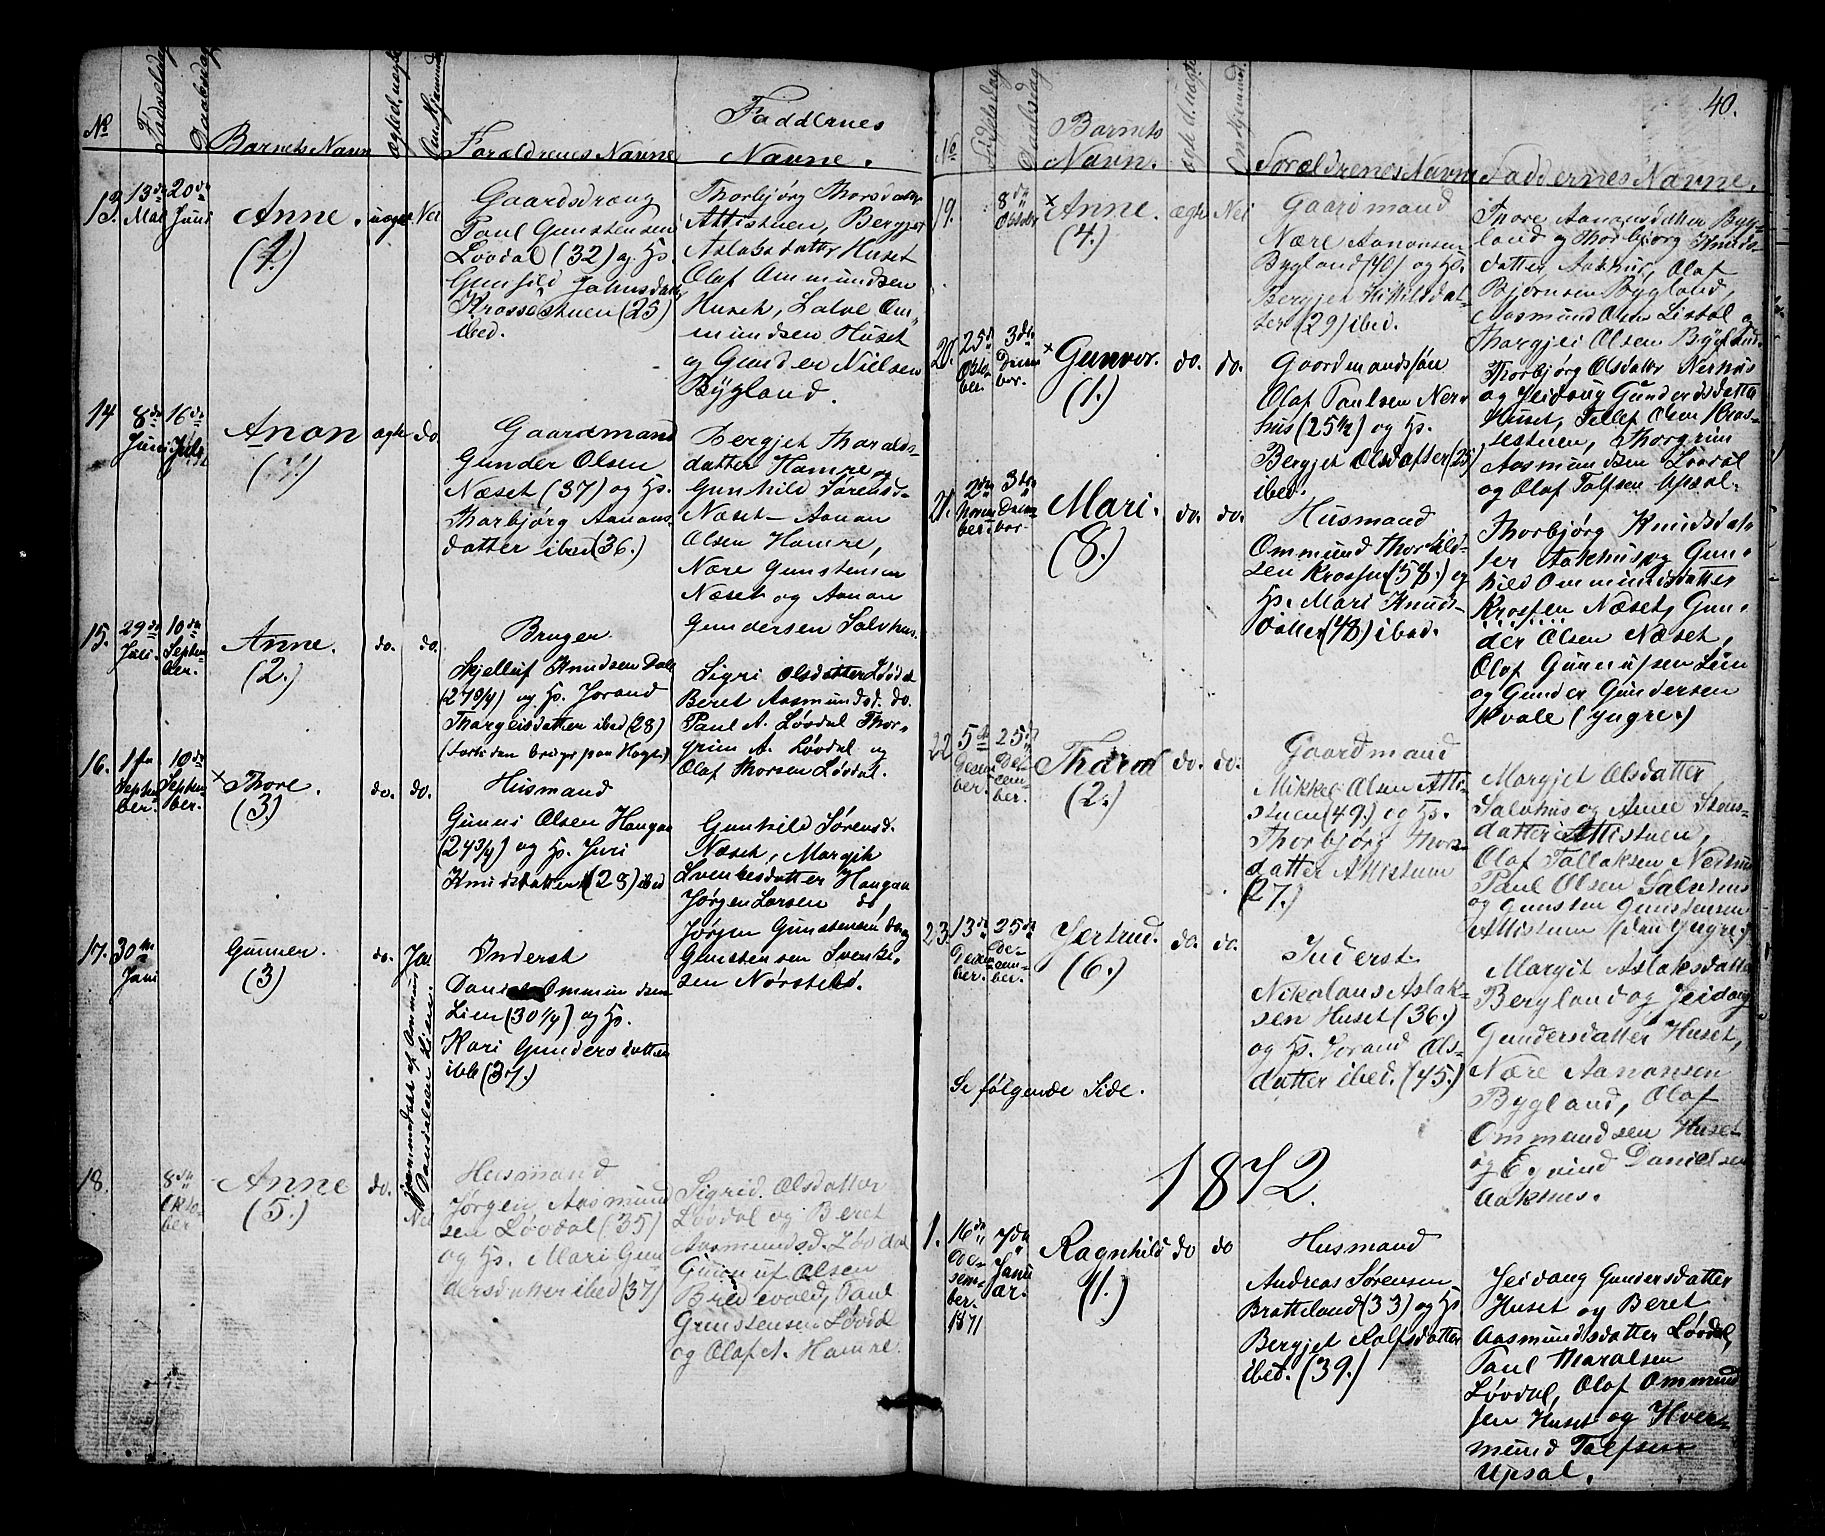 40.
No
Fødselsdag
Daabsdag
Barnets Navn
Om Hjemmed.
Forældrenes Navne
Faddernes
Navne.
13.
13de
Mai
20de
Juni
Anne.
(1.)
uægte
Nei
Gaardsdreng
Paul Gunstensen
Løvdal (32) og Hs.
Gunhild Johnsdatter
Krossestuen (25)
ibed.
Thorbjørg Thorsdatter
Attistuen, Bergjet
Aslaksdatter Huset
Olaf Ommundsen
Huset, Salve Om-
mundsen Huset
og Gunder Nielsen
Bygland.
14
8de
Juni
16de
Juli
Anon
ægte
do
Gaardmand
Gunder Olsen
Næset (37) og Hs.
Thorbjørg Aanans-
datter ibed (36.)
Bergjet Tharalds-
datter Hamre og
Gunhild Sørensd.
Næset Aanan
Olsen Hamre,
Nære Gunstensen
Næset og Aanan
Gundersen Salvhus.
15.
29de
Juli.
10de
Septem-
ber.
Anne.
(2.)
do.
do.
Bruger
Kjelluf Knudsen Dale
(27 3/4) og Hs. Jorand
Thargeisdatter ibed (28)
Sigri Olsdatter Lødal
Beret Aasmundsd. do.
Paul A. Løvdal Thor-
grim A. Løvdal og
Olaf Thorsen Løvdal.
16.
1ste
Septem-
ber.
10de
Septem-
ber.
× Thore.
(3.)
do.
do.
Husmand
Gunni Olsen Haugaa
(24 3/4) og Hs. Juri
Knudsdatter (28) ibed
Gunhild Sørensd.
Næset, Margit
Svenkesdatter Haugaa
Jørgen Larsen do,
Jørgen Gunstensen do og
Gunstensen Svenke-
sen Nørsteld.
17.
30te
Juni
Gunner.
(3)
do.
Ja
hjemmedøbt af Ommund
Danielsen Lien.
Inderst
Daniel Ommundsen
Lien (30 1/4) og Hs.
Kari Gundersdatter
ibd (37.)
18.
8de
Okto-
ber
Anne
(5.)
do.
Nei
Husmand
Jørgen Aasmund-
sen Løvdal (35)
og Hs. Mari Gun-
dersdatter ibed (37)
Sigrid Olsdatter
Løvdal og Beret
Aasmundsd. Løvdal
Gunuf Olsen
Bredevold, Paul
Gunstensen Løvdal
og Olaf A. Hamre.
No
Fødselsdag
Daabsdag
Barnets
Navn.
Om Hjemmed.
Forældrenes Navne
Faddernes Navne.
19.
8de
Oktober
× Anne.
(4.)
ægte
Nei
Gaardmand
Nære Aanonsen
Bygland (40) og Hs.
Bergjet Kittilsdat-
ter (29) ibed.
Thore Aanansdatter Byg-
land og Thorbjørg Knuds-
datter Aakhus, Olaf
Bjørnsen Bygland,
Aasmund Olsen Listøl og
Thargjei Olsen Bygland.
20.
25de
Okto-
ber.
3de
Decem-
ber.
× Gunvor.
(1.)
do.
do.
Gaardmandssøn
Olaf Paulsen Ner-
hus (25 1/2) og Hs.
Bergjet Olsdatter (25)
ibed.
Thorbjørg Olsdatter Nerhus
og Jeidang Gundersdatter
Huset, Tellef Olsen Kros-
sestuen, Thorgrim
Aasmundsen Løvdal
og Olaf Tolfsen Upsal.
21.
2den
Novem-
ber.
3de
Decem-
ber.
Mari.
(8.)
do.
do.
Husmand
Ommund Thorkild-
sen Krossen (58.) og
Hs. Mari Knuds-
datter (48) ibed.
Thorbjørg Knudsdat-
ter Aakhus og Gun-
hild Ommundsdatter
Krossen Næset, Gun-
der Olsen Næset,
Olaf Gunnufsen Lien
og Gunder Gundersen
Kvale (yngre.)
22
5te
Decem-
ber.
25de
De-
cem-
ber.
Tharal
(2.)
do.
do.
Gaardmand
Mikkel Olsen Atti-
stuen (49.) og Hs.
Thorbjørg Thors-
datter Attistuen
(27.)
Margjet Olsdatter
Salvhus og Anne Stens-
datter Attistuen,
Olaf Tallaksen Nerhus
Paul Olsen Salvhus
og Gunsten Gunstensen
Attistuen (den yngre.)
23.
13de
Decem-
ber.
25de
De-
cem-
ber.
Jertrud.
(6.)
do.
do.
Inderst.
Nikolaus Aslak-
sen Huset (36.)
og Hs. Jorand Ols-
datter ibed. (45.)
Margit Aslaksdatter
Bergland og Jeidang
Gundersdatter Huset,
Nære Aanonsen
Bygland, Olaf
Ommundsen Huset
og Eyvind Danielsen
Aakhus.
Se følgende Side.
1872.
1.
16de
De-
sem-
ber.
1871
7de
Janu
ar.
Ragnhild
(1.)
do
do
Husmand
Andreas Sørensen
Bratteland (33) og Hs.
Bergjet Rolfsdatter
ibed. (39.)
Jeidang Gundersdatter
Huset og Beret
Aasmundsdatter Løvdal,
Paul Tharalsen
Løvdal, Olaf Ommund
sen Huset og Hver-
mund Tolfsen
Upsal.